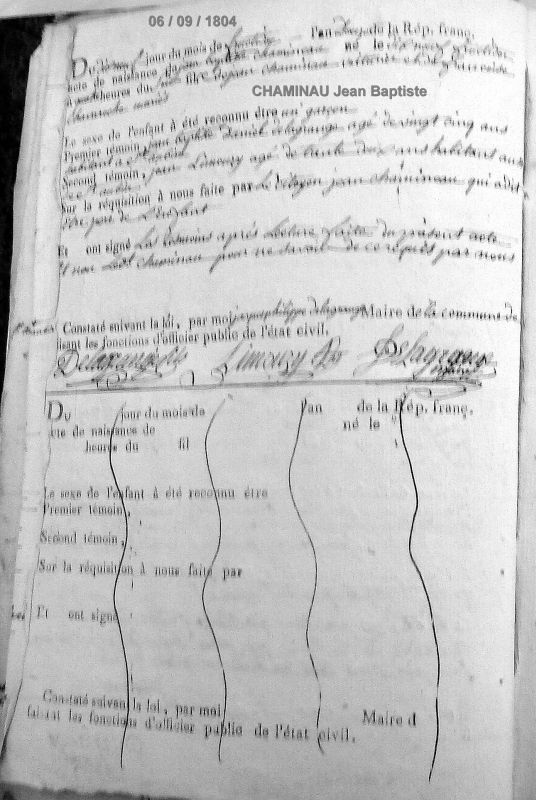 06 / 09 / 1804
l'an Douze de la Rép. franç.
Du dix neuf jour du mois de fructidor
acte de naissance de jean baptiste chamineau né le dix neuf fructidor
heures du fils de jean chamineau et de françoise
mariés
CHAMINAU Jean Baptiste
Le sexe de l'enfant à été reconnu être un garçon
Premier témoin, jean baptiste daniel delagrange agé de vingt cinq ans
habitant a St
Second témoin, jean Limouzy agé de trente deux ans habitant au
Sur la réquisition à nous faite par le citoyen jean chamineau qui a dit
être pere de L'enfant
Et ont signé Les temoins après Lecture faite du présent acte
Et non Ledt chamineau pour ne savoir de ce requis par nous
Constaté suivant la loi, par moi philippe delagrange Maire de la commune de
faisant les fonctions d'officier public de l'état civil.
Delagrange Limouzy Delagrange
Du jour du mois de l'an de la Rép. franç.
acte de naissance de né le
heures du fil
Le sexe de l'enfant à été reconnu être
Premier témoin,
Second témoin,
Sur la réquisition à nous faite par
Et ont signé
Constaté suivant la loi, par moi Maire d
faisant les fonctions d'officier public de l'état civil.